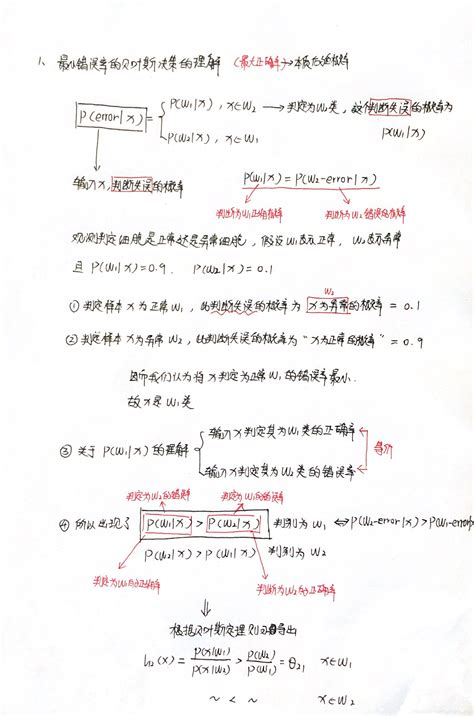 1、最小错误率的贝叶斯决策的理解 (最大正确率)→本质后验概率
P(error|x) = { P(w₁|x), x∈w₂ → 判定为w₂类, 这个判断失误的概率为 P(w₁|x)
P(w₂|x), x∈w₁
输入x,判断失误的概率
P(w₁|x) = P(w₂-error|x)
判断为w₁正确概率 判断为w₂错误的概率
观测判定细胞是正常还是异常细胞, 假设w₁表示正常, w₂表示异常
且 P(w₁|x)=0.9. P(w₂|x)=0.1
w₂
① 判定样本x为正常w₁, 此判断失误的概率为 x为异常的概率 = 0.1
② 判定样本x为异常w₂, 此判断失误的概率为“x为正常的概率” = 0.9
因而我们认为将x判定为正常w₁的错误率最小.
故x是w₁类
③ 关于P(w₁|x)的理解 { 输入x判定其为w₁类的正确率
输入x判定其为w₂类的错误率
等价
判定为w₂的错误率 判定为w₁的错误率
④ 所以出现了 P(w₁|x) > P(w₂|x) 判别为w₁ ⇔ P(w₂-error|x) > P(w₁-erro
P(w₂|x) > P(w₁|x) 判别为w₂
判定为w₁的正确率 判断为w₂的正确率
⇓
根据贝叶斯定理则可导出
l₁₂(x) = P(x|w₁)/P(x|w₂) > P(w₂)/P(w₁) = θ₂₁ x∈w₁
~ < ~ x∈w₂